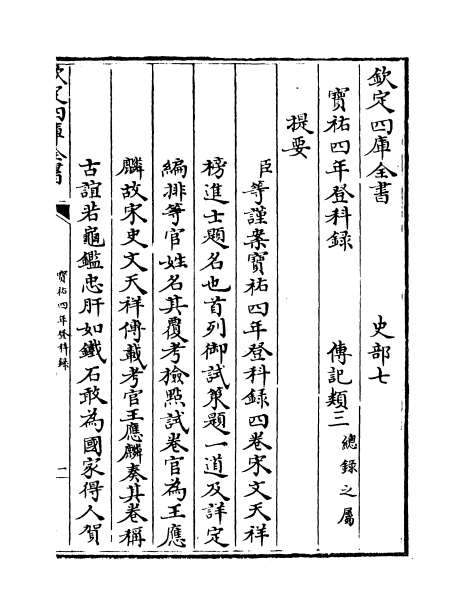 欽定四庫全書　　　史部七
寶祐四年登科録　　傳記類三總録之屬
提要
臣等謹案寶祐四年登科録四卷宋文天祥
榜進士題名也首列御試策題一道及詳定
編排等官姓名其覆考檢點試卷官為王應
麟故宋史文天祥傳載考官王應麟奏其卷稱
古誼若龜鑑忠肝如鐵石敢為國家得人賀
欽定四庫全書
寶祐四年登科録
一